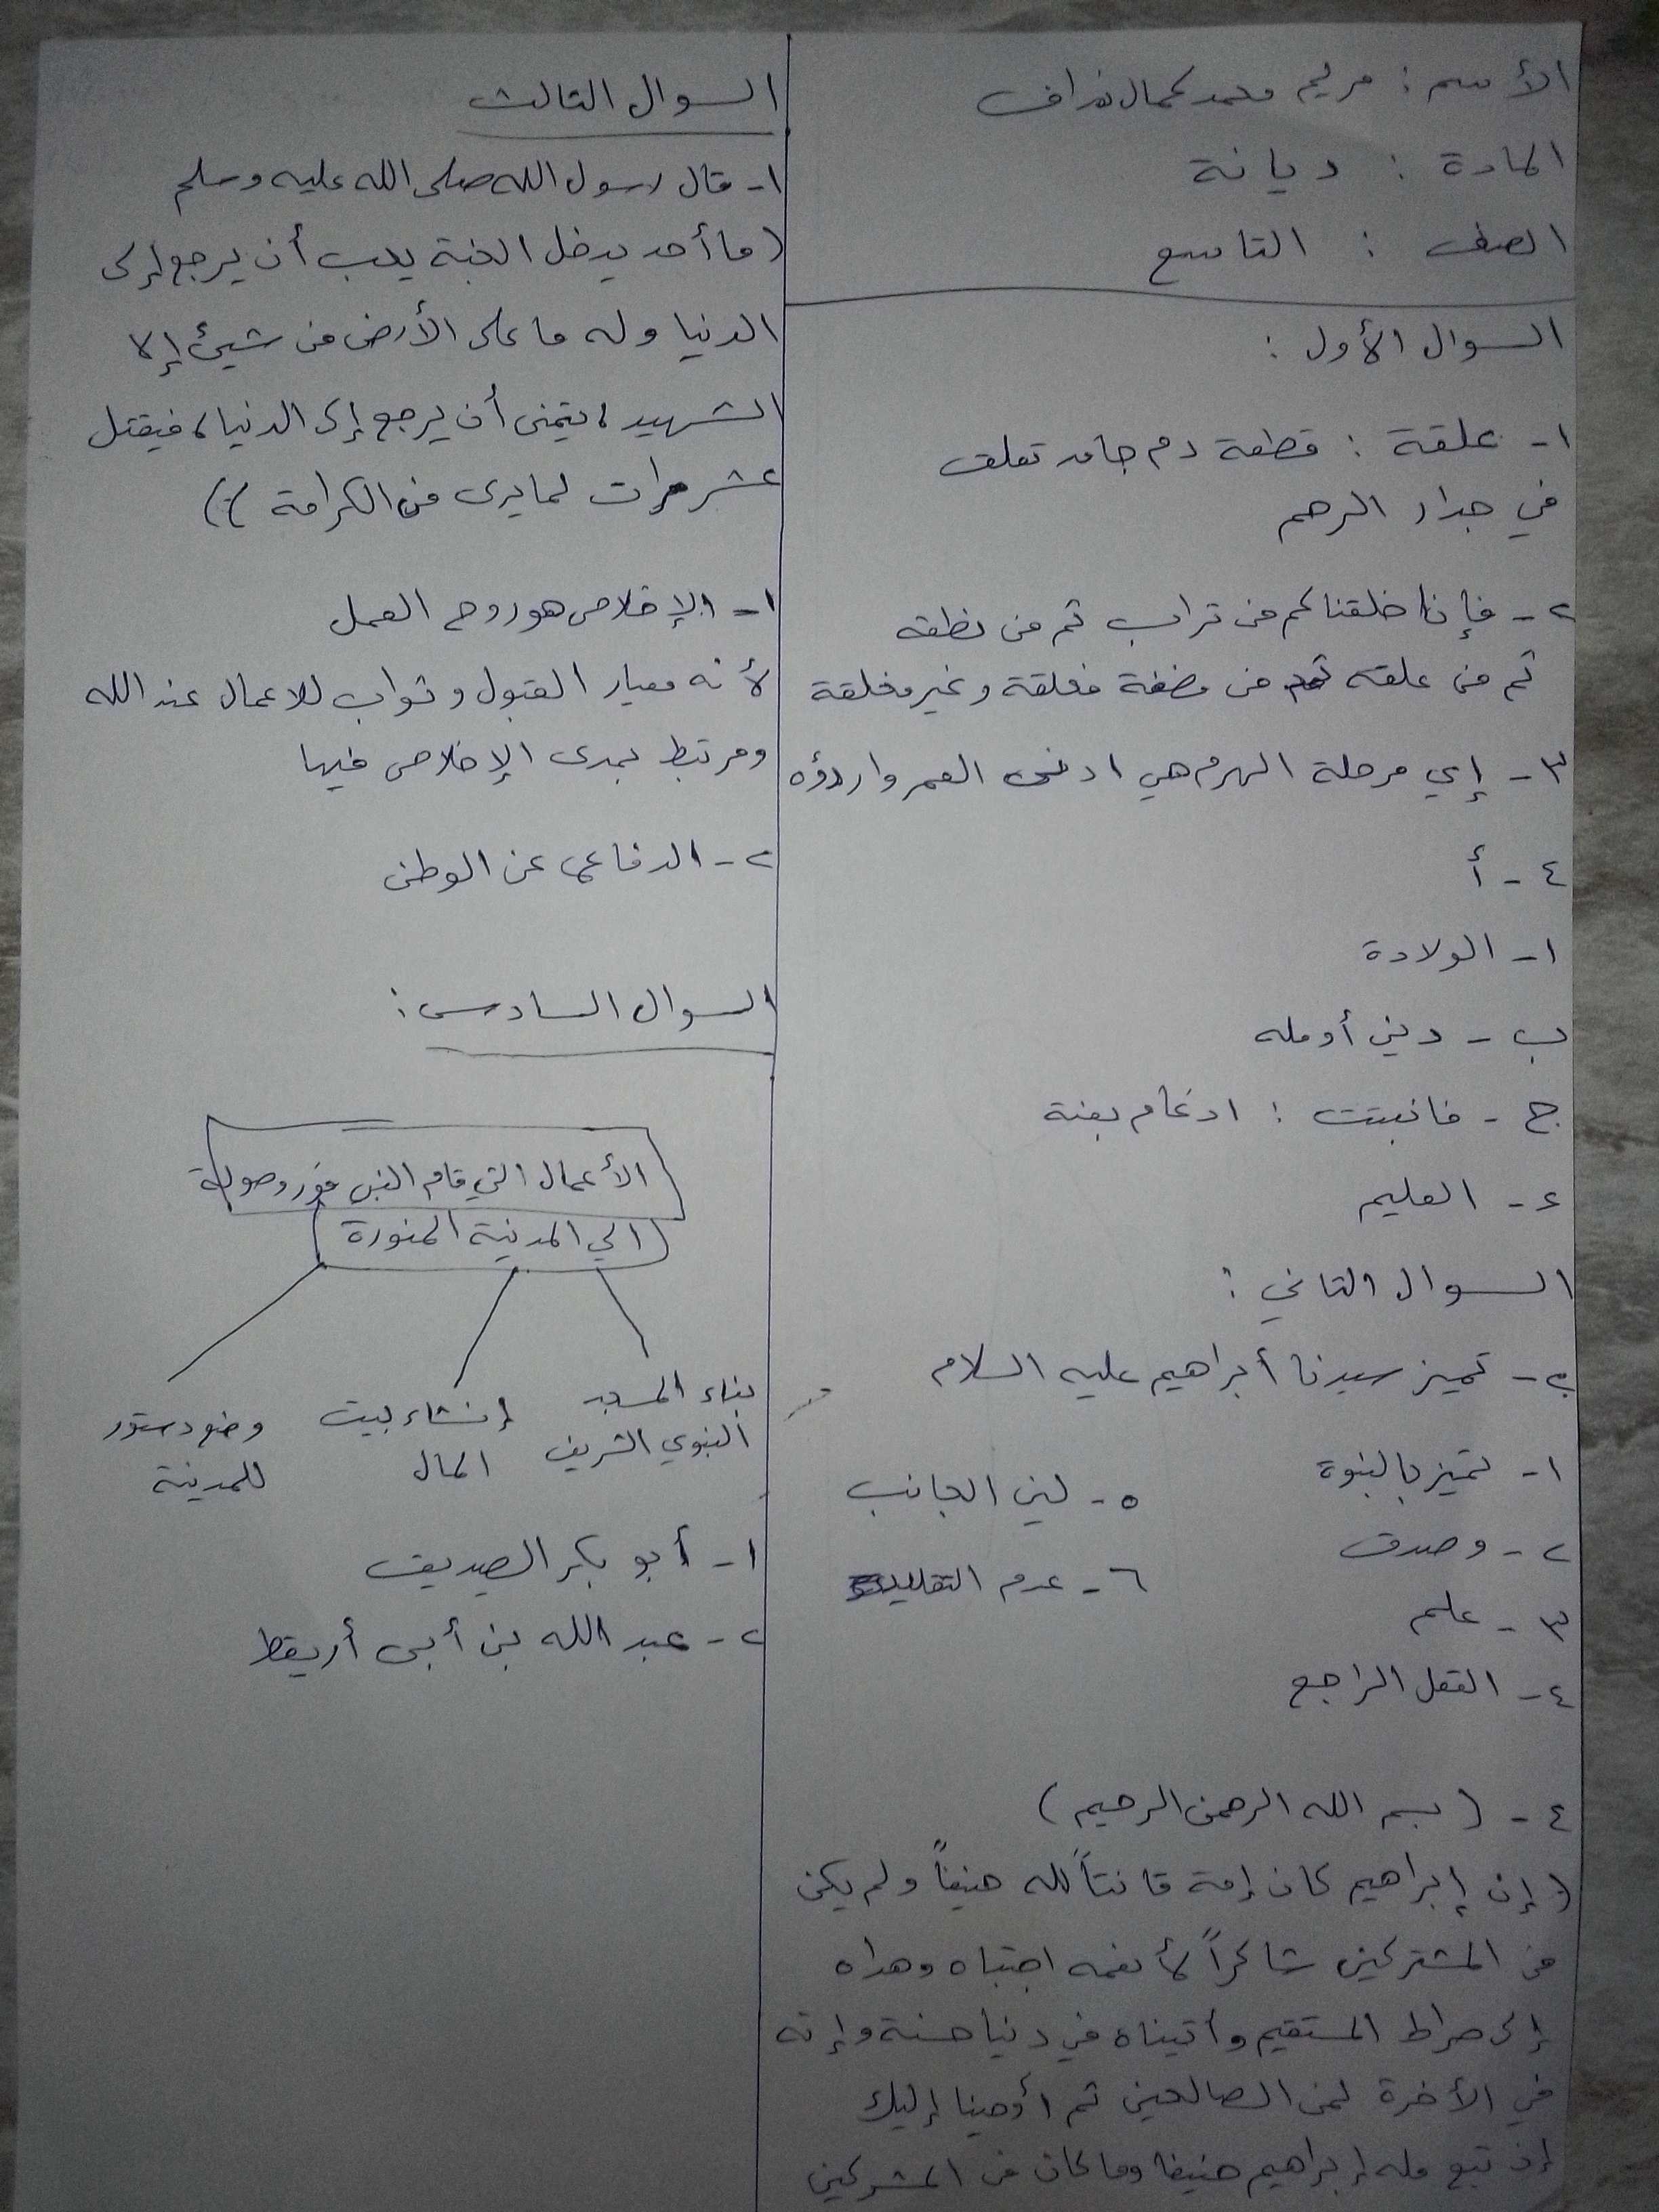 الأسم : مريم محمد كمال نداف
المادة : ديانة
الصف : التاسع
السوال الأول :
١- علقة : قطعة دم جامد تعلق
في جدار الرحم
٢- فإنا خلقناكم من تراب ثم من نطفه
ثم من علقه ثم من مضغة مخلقة وغير مخلقة
٣- إي مرحلة الهرم هي ادنى العمر واردؤه
٤- أ
١- الولادة
ب- دين أو مله
ج- فانبتت : ادغام بغنة
ء- العليم
السوال الثاني :
ب- تميز سيدنا أبراهيم عليه السلام
١- تميز بالنبوة
٢- وصدق
٣- علم
٤- العقل الراجع
٥- لين الجانب
٦- عدم التقليد
٤- (بسم الله الرحمن الرحيم)
(إن إبراهيم كان إمة قانتاً لله حنيفاً ولم يكن
من المشتركين شاكراً لأنعمه اجتباه وهداه
إلى صراط المستقيم وأتيناه في دنيا حسنة وإنه
في الأخرة لمن الصالحين ثم أوحينا إليك
إن تبع مله إبراهيم حنيفا وما كان من المشركين
السوال الثالث
١- قال رسول الله صلى الله عليه وسلم
(ما أحد يدخل الجنة يحب أن يرجع إلى
الدنيا وله ما على الأرض من شيئ إلا
الشهيد، يتمنى أن يرجع إلى الدنيا، فيقتل
عشر مرات لما يرى من الكرامة))
١- الإخلاص هو روح العمل
لأنه معيار القبول وثواب للاعمال عند الله
ومرتبط بمدى الإخلاص فيها
٢- الدفاع عن الوطن
السوال السادس :
الأعمال التي قام النبي فور وصولة
الي المدينة المنورة
بناء المسجد
النبوي الشريف
إنشاء بيت
المال
وضع دستور
للمدينة
١- أبو بكر الصديق
٢- عبد الله بن أبى أريقط